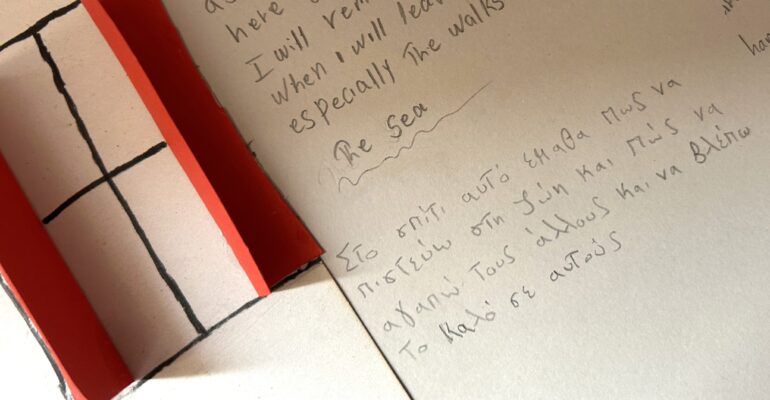 here
I will rem
when I will leav
especially The walks
The sea
Στο σπίτι αυτό έμαθα πως να
πιστεύω στη ζώη και πώς να
αγαπώ τους άλλους και να βλέπω
το καλό σε αυτούς